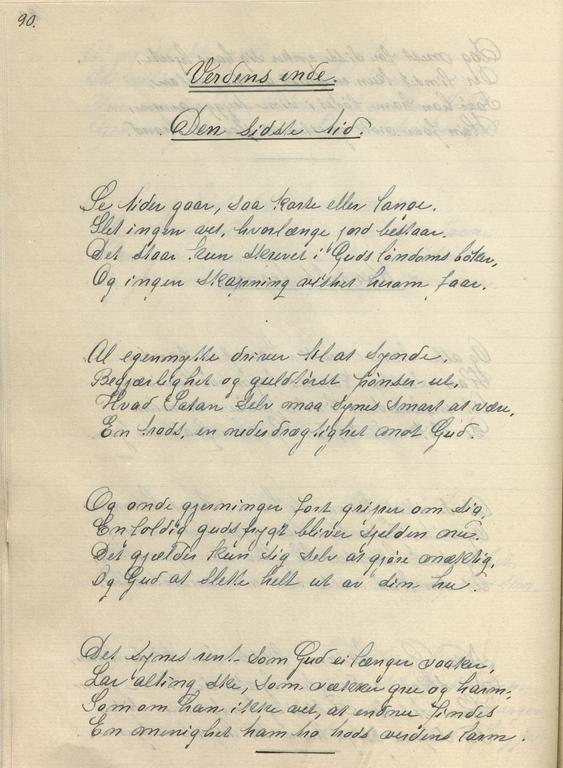 90.
Verdens ende.
Den sidste tid.
Se tider gaar, saa korte eller lange,
Slet ingen vet, hvorlænge jord bestaar.
Det staar kun skrevet i Guds løndoms bøker,
Og ingen skapning visshet herom faar.
Al egennytte driver til at synde,
Begjærlighet og guldtørst pønser ut,
Hvad Satan selv maa synes smart at være,
En trods, en nederdrægtighet mot Gud.
Og onde gjerninger fort griper om sig,
Enfoldig gudsfrygt bliver sjelden nu.
Det gjælder kun sig selv at gjøre mæktig,
Og Gud at slette helt ut av din hu.
Det synes rent som Gud ei længer vaaker,
Lar alting ske, som vækker gru og harm,
Som om han ikke vet, at endnu findes
En menighet ham tro trods verdens larm.